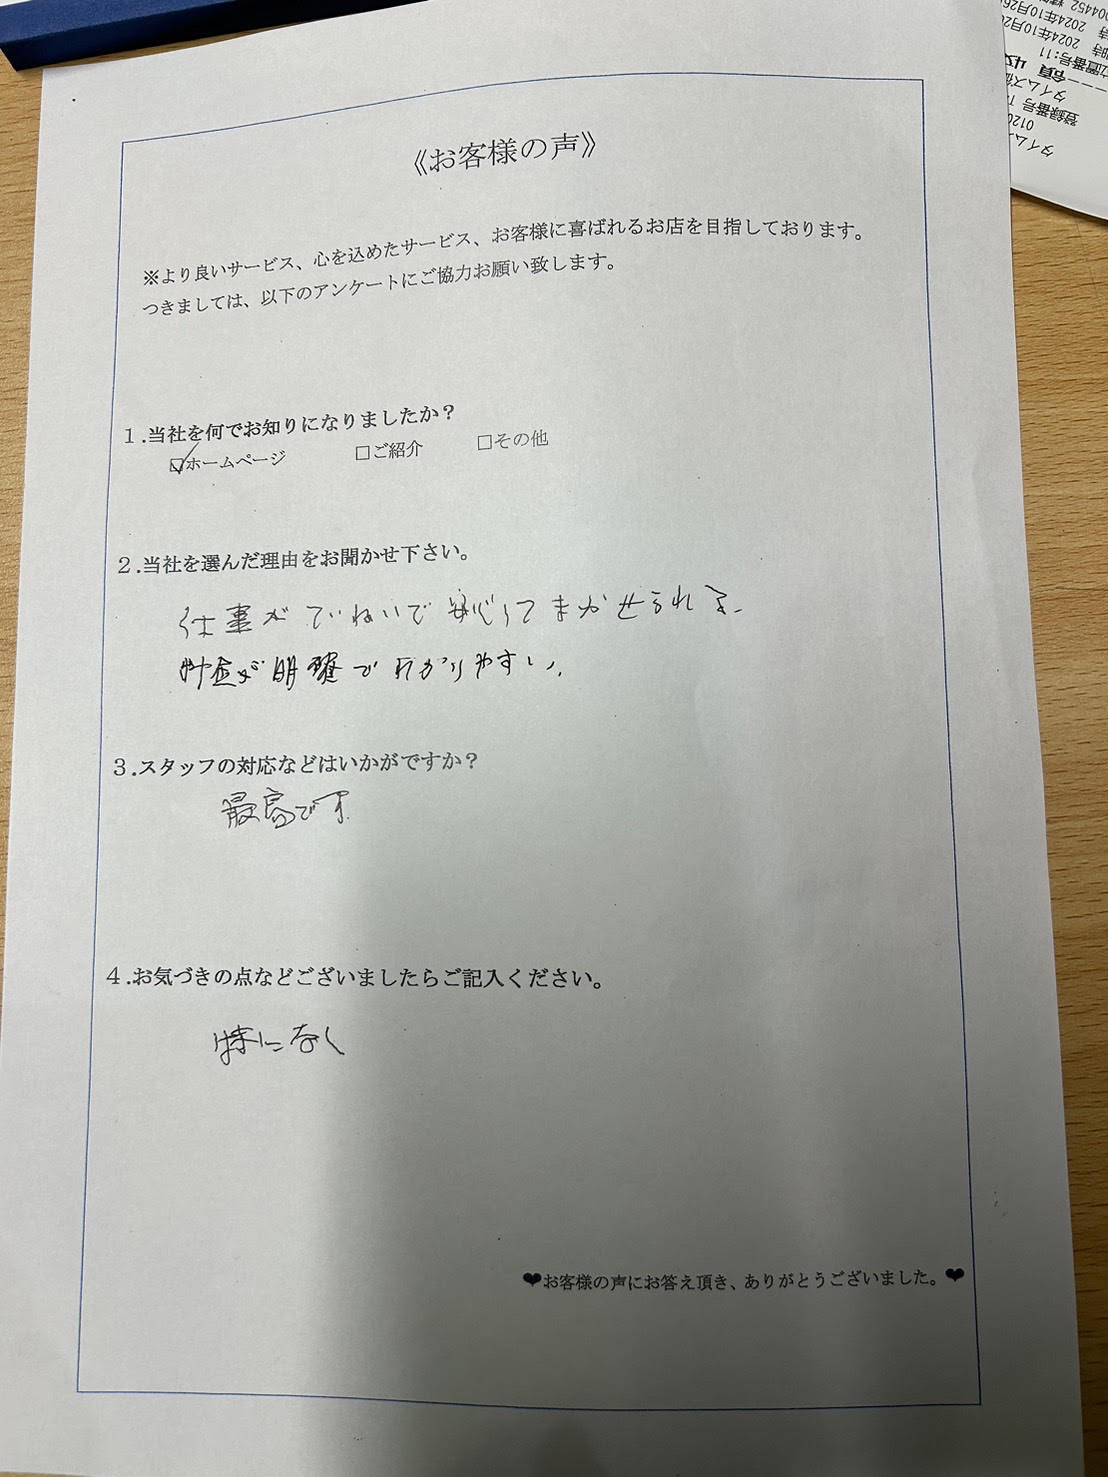 《お客様の声》
※より良いサービス、心を込めたサービス、お客様に喜ばれるお店を目指しております。
つきましては、以下のアンケートにご協力お願い致します。
1.当社を何でお知りになりましたか？
☑ホームページ □ご紹介 □その他
2.当社を選んだ理由をお聞かせ下さい。
仕事がていねいで安心してまかせられる。
料金が明確でわかりやすい。
3.スタッフの対応などはいかがですか？
最高です
4.お気づきの点などございましたらご記入ください。
特になし
❤お客様の声にお答え頂き、ありがとうございました。❤
2024年10月26
2024年10月2
位置番号:11
領収
タイムズ
登録番号 T
0120